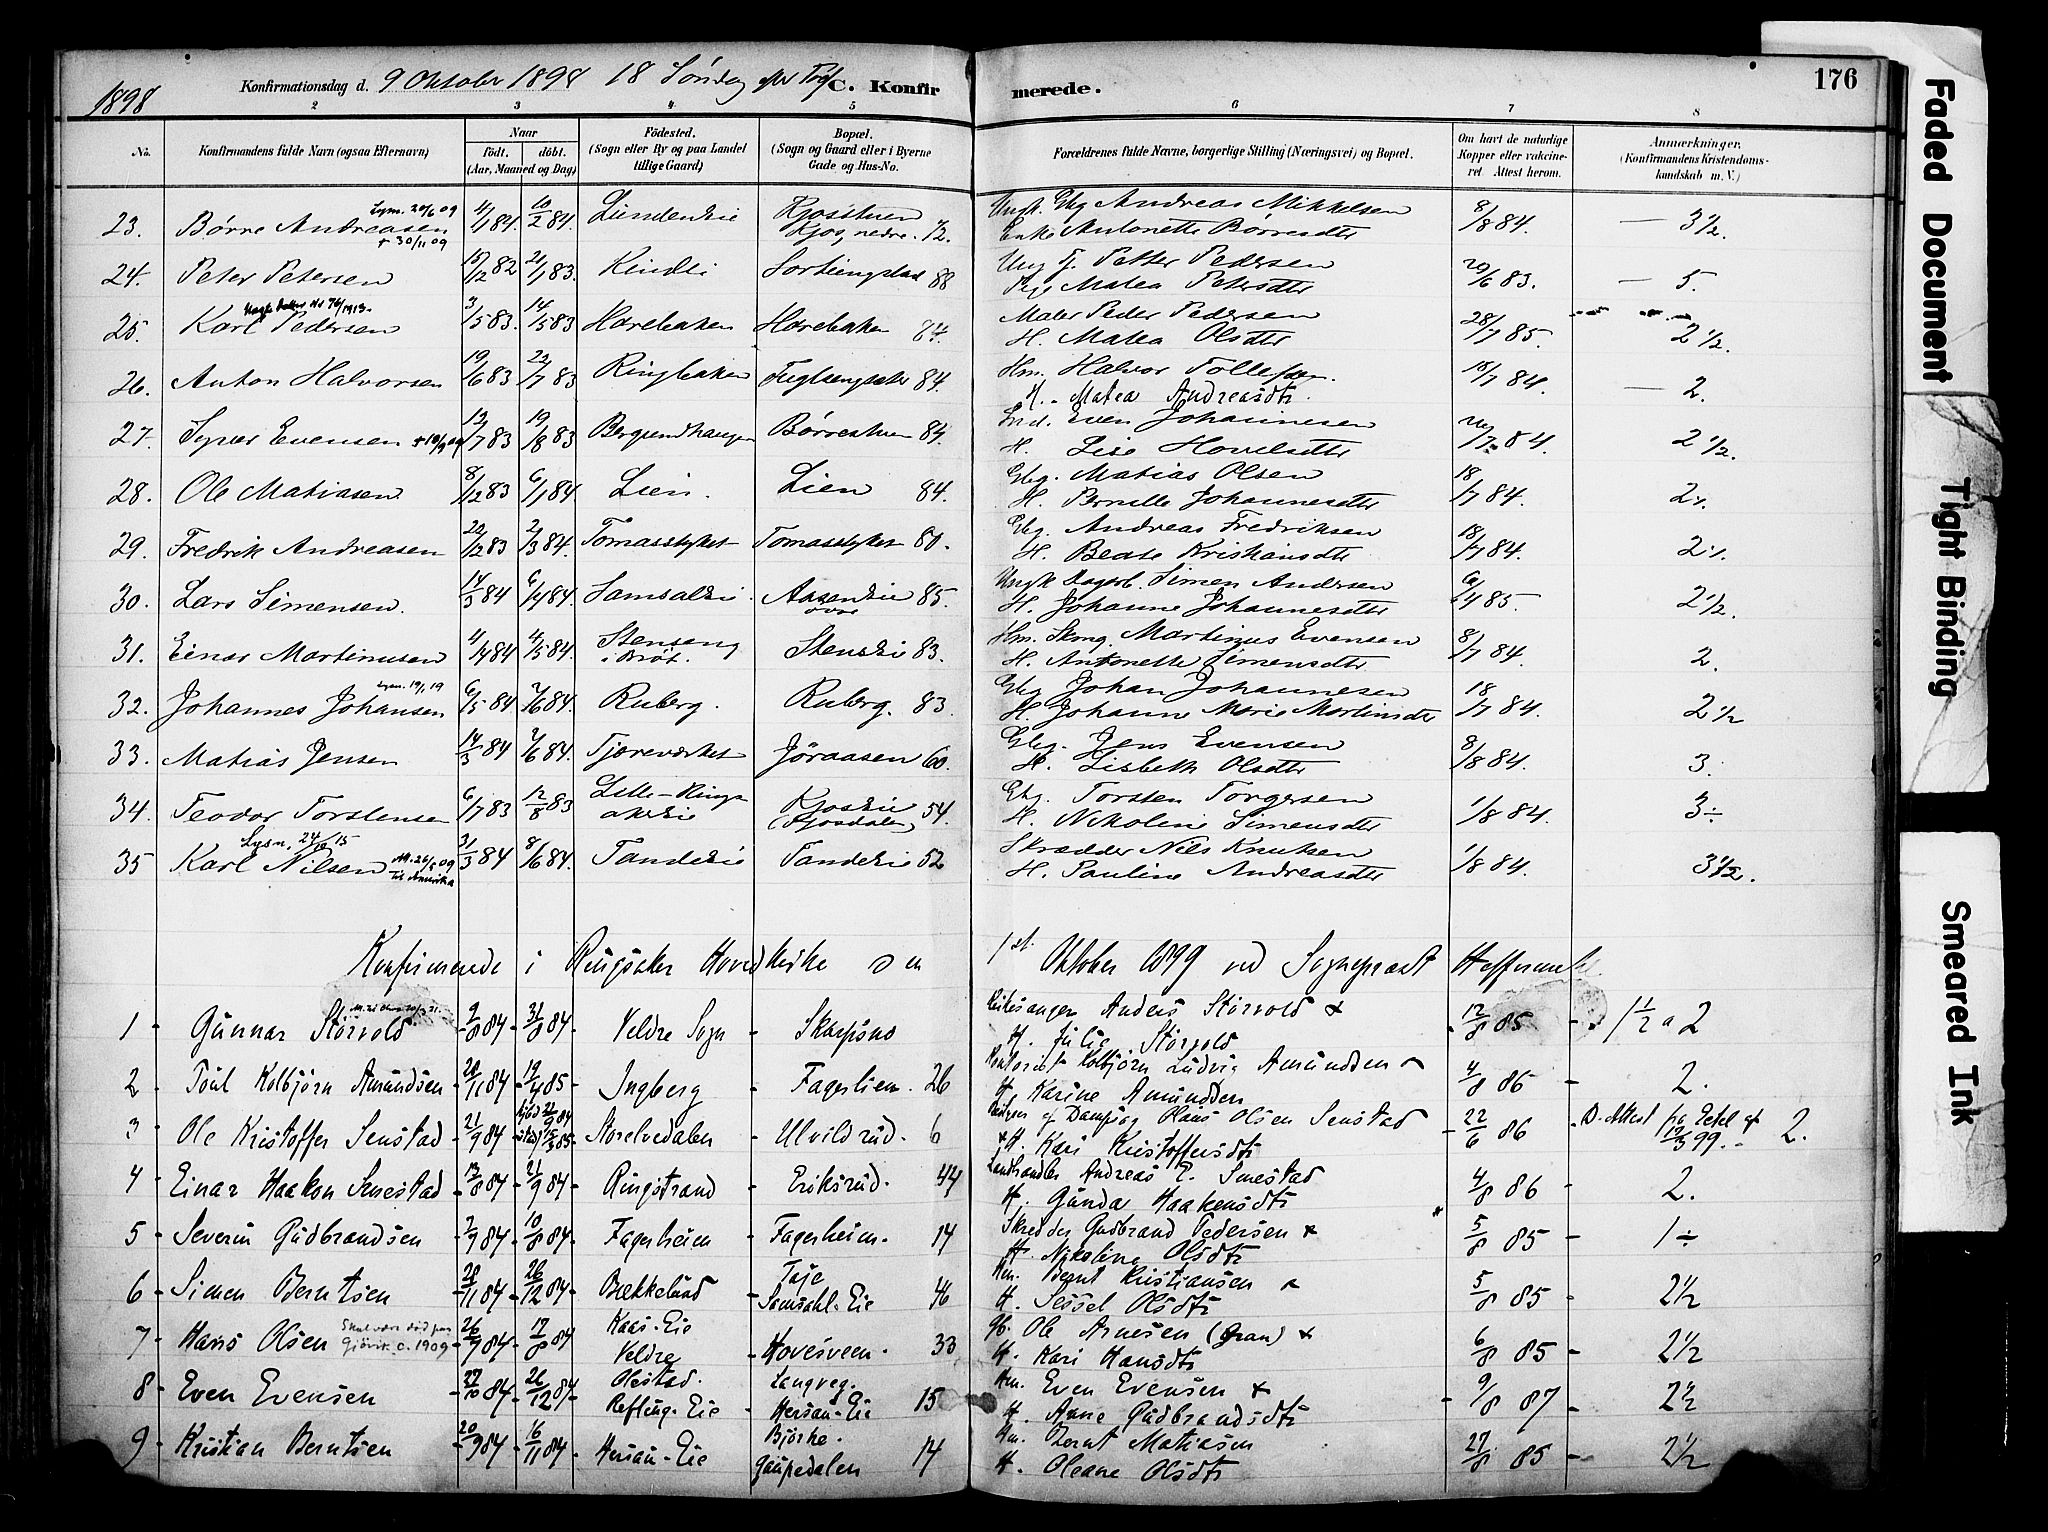 1898
Konfirmationsdag d. 9 Oktober 1898 18 Søndag efter Tref. C. Konfirmerede. 176
2 3 4 5 6 7 8
No. Konfirmandens fulde Navn (ogsaa Efternavn) Naar födt. döbt. (Aar, Maaned og Dag) Födested. (Sogn eller By og paa Landet tillige Gaard) Bopæl. (Sogn og Gaard eller i Byerne Gade og Hus-No. Forældrenes fulde Navne, borgerlige Stilling (Næringsvei) og Bopæl. Om havt de naturlige Kopper eller vaccineret. Attest herom. Anmærkninger. (Konfirmandens Kristendomskundskab m. V.)
Lysn. 20/6 09
23. Børre Andreasen 4/1 84. 10/2 84. Lundeneie Kjosstuen Kjos, nedre. 72. Ungk. Gbg Andreas Mikkelsen 8/8 84. — 3 1/2.
+ 30/11 09 Enke Antonette Børresdtr
24. Peter Petersen 15/12 82 21/1 83. Kindli 88 Petter Pedersen 20/6 83. — 5.
Matea Petersdtr
25. Karl Pedersen 3/5 83. 14/5 83 Harebaken Harebaken 84. Maler Peder Pedersen 28/7 85. 2 1/2.
H. Matea Olsdtr
26. Anton Halvorsen 19/6 83 22/7 83 Ringbaken Fuglsengsaker 84. Hm. Halvor Tollefsen. 18/7 84. — 2.
H. Matea Andreasdtr.
27. Syver Evensen 13/7 83 19/8 83 Bergsundhaugen Børrestuen 84. Ind. Even Johannesen /7 84. 2 1/2.
H. Lise Hovelsdtr
28. Ole Matiasen 8/12 83 6/1 84. Lien. Lien 84. Gbg. Matias Olsen 18/7 84. 2
H. Pernille Johannesdtr
29. Fredrik Andreasen 22/12 83 2/3 84. Tomasstykket Tomasstyket 80. Gbg. Andreas Fredriksen 18/7 84. 2
H. Beate Kristiansdtr
30. Lars Simensen. 14/3 84 6/4 84. Samsaleie. Aaseneie 85. Ungk Dagarb. Simen Andersen 6/4 85. 2 1/2.
øvre H. Johanne Johannesdtr
31. Einar Martinusen 4/4 84 4/5 84. Stenseng i Brøt. Stenseie 83. Hm. Skomg. Martinus Evensen 8/7 84. 2.
H. Antonette Simensdtr
Lysn. 19/1 19
32. Johannes Johansen 6/5 84 2/6 84. Ruberg. Ruberg. 83. Gbg Johan Johannesen 18/7 84. 2 1/2
H. Johanne Marie Martinsdtr
33. Matias Jensen 14/3 84 2/6 84. Tjæreverket Jøraasen 60. Gbg. Jens Evensen 8/8 84. 3.
H. Lisbeth Olsdtr
34. Teodor Torstensen 6/7 83 12/8 83 Lille-Ringsakereie Kjoseie (Kjosdalen) 54. Gbg. Torsten Torgersen 1/8 84. 3 ÷
H. Nikoline Simensdtr
Lysn, 24/ 15
35 Karl Nilsen 31/3 84 8/6 84. Tandeeie Tandeeie 52 Skrædder Nils Knutsen 1/8 84. 3 1/2.
Att. 26/5 09 til Amerika H. Pauline Andreasdtr
Konfirmerede i Ringsaker Hovedkirke den 1st. Oktober 1899 ved Sogneprest
1 - Gunnar Størvold 9/8 84 - 31/8 84 Veldre Sogn - Skarpsno Kirkesanger Anders Størvold & 12/8 85 - 1 1/2 a 2
H. Julie Størvold
2 - Poul Kolbjørn Amundsen 20/11 84 - 19/4 85 - Ingberg - Fagerlien. 26 Kontorist Kolbjørn Ludvig Amundsen 4/8 86 - 2.
H Karine Amundsen
3 - Ole Kristoffer Senstad - 21/9 84 Storelvedalen - Ulvildrud. 6 af Dampsag Olaus Olsen Senstad - 22/6 86 - D. Attest fra 12/3 99. - 2.
& H. Kari Kristoffersdtr
4 - Einar Haakon Smestad 13/8 84 - 21/9 84 - Ringstrand - Eriksrud. 44 Landhandler Andreas E. Smestad 4/8 86 - 2.
H. Gunda Haakensdtr
5 - Severin Gudbrandsen - 2/7 84 - 10/8 84 - Fagerheim - Fagerheim. 14 Skredder Gudbrand Pedersen & 5/8 85 - 1 ÷
H. Nikoline Olsdtr
6 - Simen Berntsen - 28/11 84 - 26/12 84 - Bækkelund - Taje Samsahl-Eie 46 Hm. Bernt Kristiansen & 5/8 85 - 2 1/2
H. Sessel Olsdtr
7 - Hans Olsen Skal være død paa Gjøvik c. 1909 - 26/7 84 - 17/8 84 Kaas-Eie Veldre - Hovesveen. 33 Gb. Ole Arnesen (Gran) & 6/8 85 - 2 1/2
H. Kari Hansdtr
8 - Even Evensen - 27/10 84 - 26/12 84 Olestad. Refling-Eie Langveg. Hersau-Eie 15 Hm. Even Evensen & 9/8 87 - 2 1/2
H. Anne Gudbrandsdtr
9 - Kristian Berntsen 20/9 84 - 16/11 84 - Hersau-Eie Bjørke. Gaupedalen 14 Hm. Bernt Matiasen 27/8 85 - 2 1/2
H. Oleane Olsdtr
Faded Document
Tight Binding
Smeared Ink